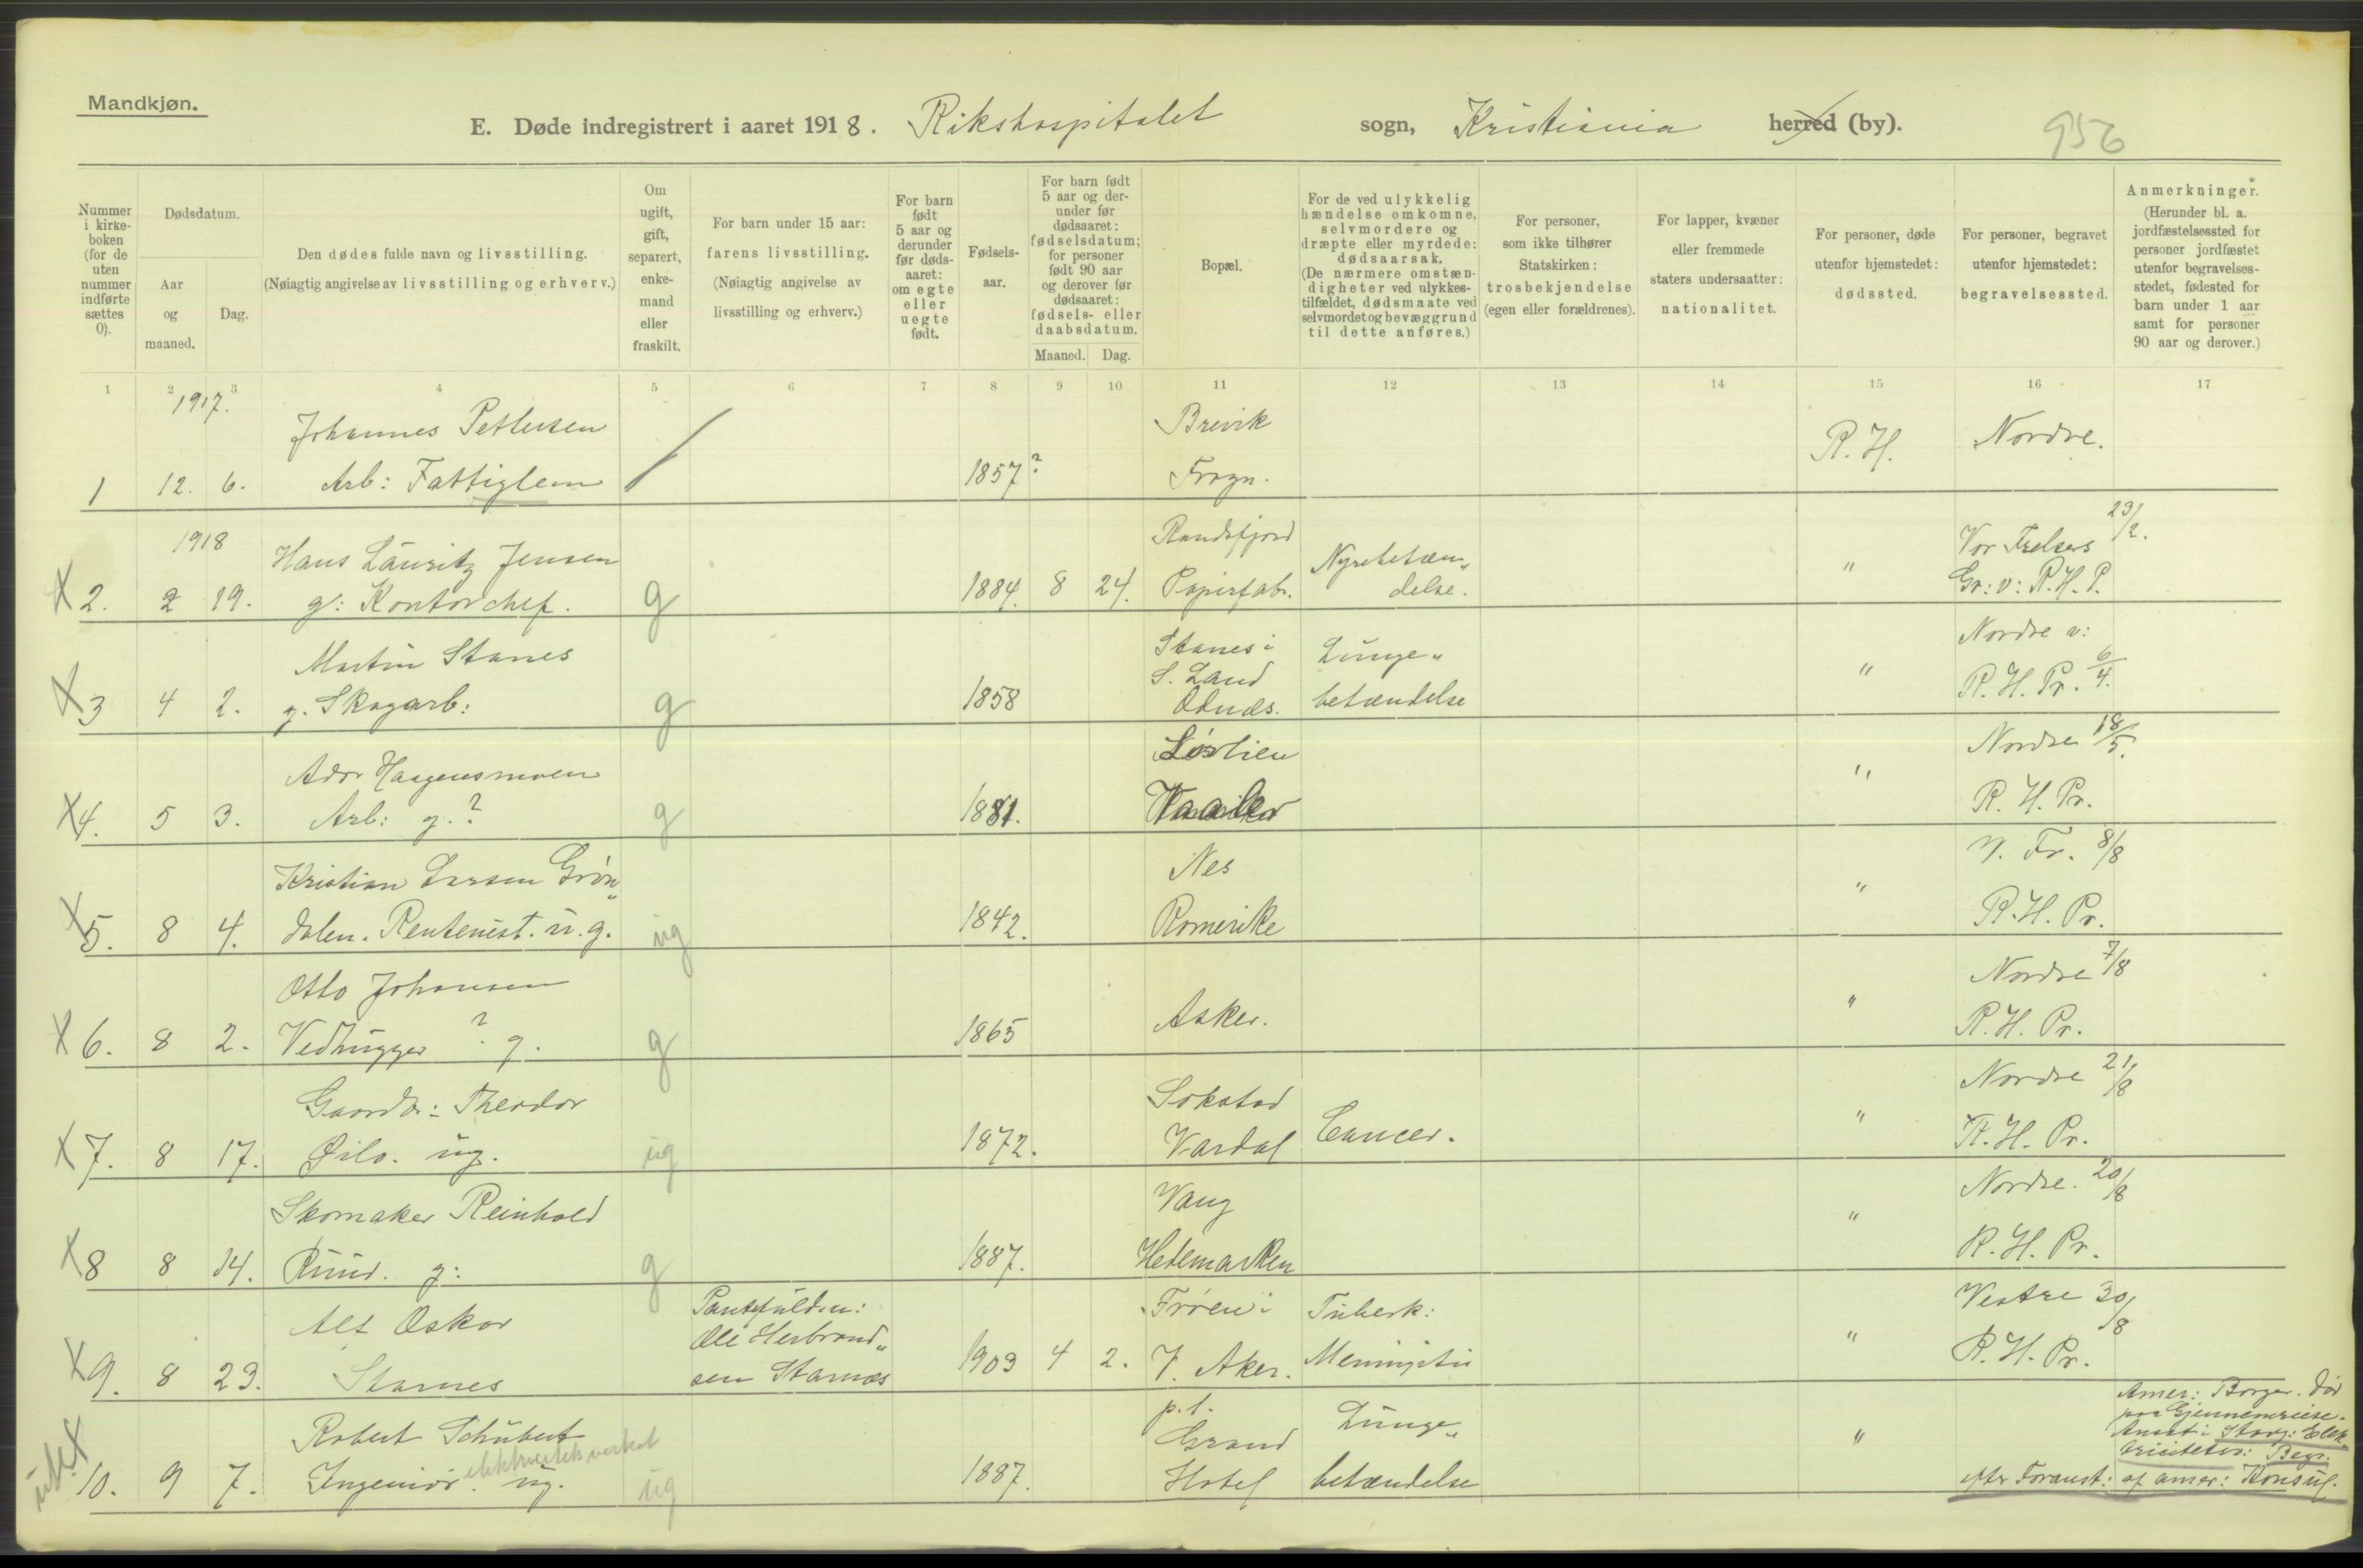 Mandkjøn.
E. Døde indregistrert i aaret 1918. Rikshospitalet sogn, Kristiania herred (by). 956
Nummer i kirkeboken (for de uten nummer indførte sættes 0).
Dødsdatum.
Aar og maaned.
Dag.
Den dødes fulde navn og livsstilling.
(Nøiagtig angivelse av livsstilling og erhverv.)
Om ugift, gift, separert, enkemand eller fraskilt.
For barn under 15 aar:
farens livsstilling.
(Nøiagtig angivelse av livsstilling og erhverv.)
For barn født 5 aar og derunder før dødsaaret: om egte eller uegte født.
Fødselsaar.
For barn født 5 aar og derunder før dødsaaret: fødselsdatum; for personer født 90 aar og derover før dødsaaret: fødsels- eller daabsdatum.
Maaned. Dag.
Bopæl.
For de ved ulykkelig hændelse omkomne, selvmordere og dræpte eller myrdede: dødsaarsak.
(De nærmere omstændigheter ved ulykkestilfældet, dødsmaate ved selvmordet og bevæggrund til dette anføres.)
For personer, som ikke tilhører Statskirken: trosbekjendelse (egen eller forældrenes).
For lapper, kvæner eller fremmede staters undersaatter: nationalitet.
For personer, døde utenfor hjemstedet: dødssted.
For personer, begravet utenfor hjemstedet: begravelsessted.
Anmerkninger.
(Herunder bl. a. jordfæstelsessted for personer jordfæstet utenfor begravelsesstedet, fødested for barn under 1 aar samt for personer 90 aar og derover.)
1 2 3 4 5 6 7 8 9 10 11 12 13 14 15 16 17
1917.
Johannes Pettersen Brevik R. H. Nordre.
1 12. 6. Arb: Fattiglem 1857? Frogn.
1918
Hans Lauritz Jensen Randsfjord Nyrebetæn- " Vor Frelsers 23/2.
X 2. 2 19. g: Kontorchef. g 1884. 8 24. Papirfabr. delse. Gr: v: R.H.P.
Martin Stanes Stanes i Lunge- " Nordre v:
X 3 4 2. g. Skogarb: g 1858 S. Land Odnes. betændelse R. H. Pr. 6/4.
Ador Haagensmoen Løvlien " Nordre 18/5.
X 4. 5 3. Arb: g.? g 1881. Vaaler R. H. Pr.
Kristian Larsen Grøn- Nes " V. Fr. 8/8
X 5. 8 4. dalen. Rentenist. u. g. ug 1842. Romerike R.H. Pr.
Otto Johansen " Nordre 7/8
X 6. 8 2. Vedhugger ? g. g 1865 Asker. R.H. Pr.
Gaardbr: Theodor Sokstad " Nordre 21/8
X 7. 8 17. Øilo. ug. ug 1872. Vardal Cancer. R.H. Pr.
Skomaker Reinhold Vang " Nordre. 20/8
X 8 8 14. Ruud. g: g 1887. Hedemarken R.H. Pr.
Alf Oskar Ole Herbrand- Frøen i Tuberk: " Vestre 30/8
X 9. 8 23. Starnes sen Starnæs 1909 4 2. V. Aker. Meningitis R.H. Pr.
Robert Schubert p.t. Grand Lunge- " Amer: Borger. død paa Gjennemreise.
10. 9 7. Ingeniør. ug. elektricitetsverket ug 1887. Hotel betændelse Ansat i Begr.
efter Foranst: af amer: Konsul.